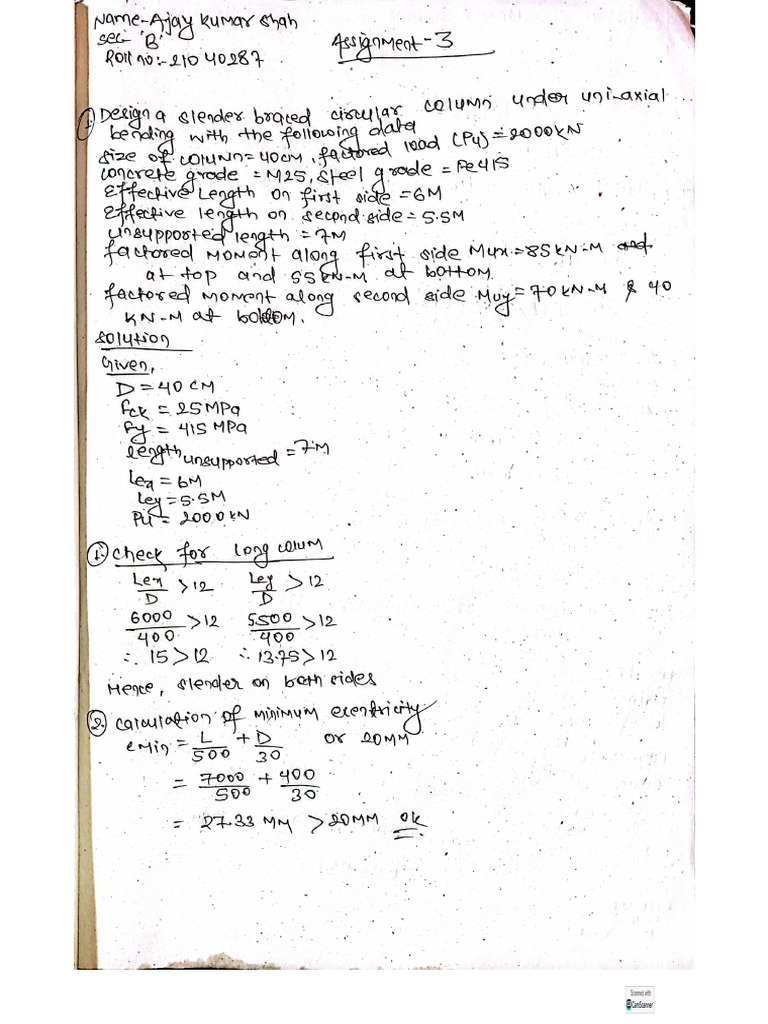 Name-Ajay Kumar Shah
Sec 'B'
Roll no:-21040287
Assignment-3
1. Design a slender braced circular column under uni-axial
bending with the following data
size of column=40cm, factored load (Pu)=2000kN
concrete grade = M25, steel grade = Fe415
Effective Length on first side =6M
Effective length on second side=5.5M
unsupported length =7M
factored Moment along first side Mux=85kN-M and
at top and 55kN-M at bottom
factored moment along second side Muy=70kN-M & 40
kN-M at bottom.
Solution
Given,
D=40 CM
Fck = 25 MPa
Fy = 415 MPa
length unsupported = 7M
Lex =6M
Ley=5.5M
Pu = 2000kN
1. Check for long colum
Lex/D >12 Ley/D >12
6000/400 >12 5500/400 >12
∴ 15>12 ∴ 13.75>12
Hence, slender on both sides
2. Calculation of minimum ecentricity
emin = L/500 + D/30 or 20MM
= 7000/500 + 400/30
= 27.33 MM > 20MM ok
Scanned with
CamScanner